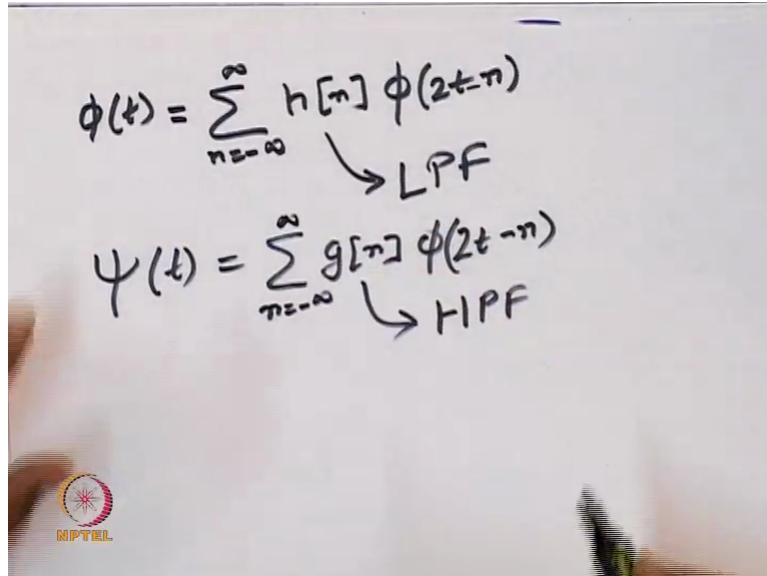 ϕ(t) = ∞∑n=-∞ h[n] ϕ(2t-n)
LPF
ψ(t) = ∞∑n=-∞ g[n] ϕ(2t-n)
HPF
NPTEL